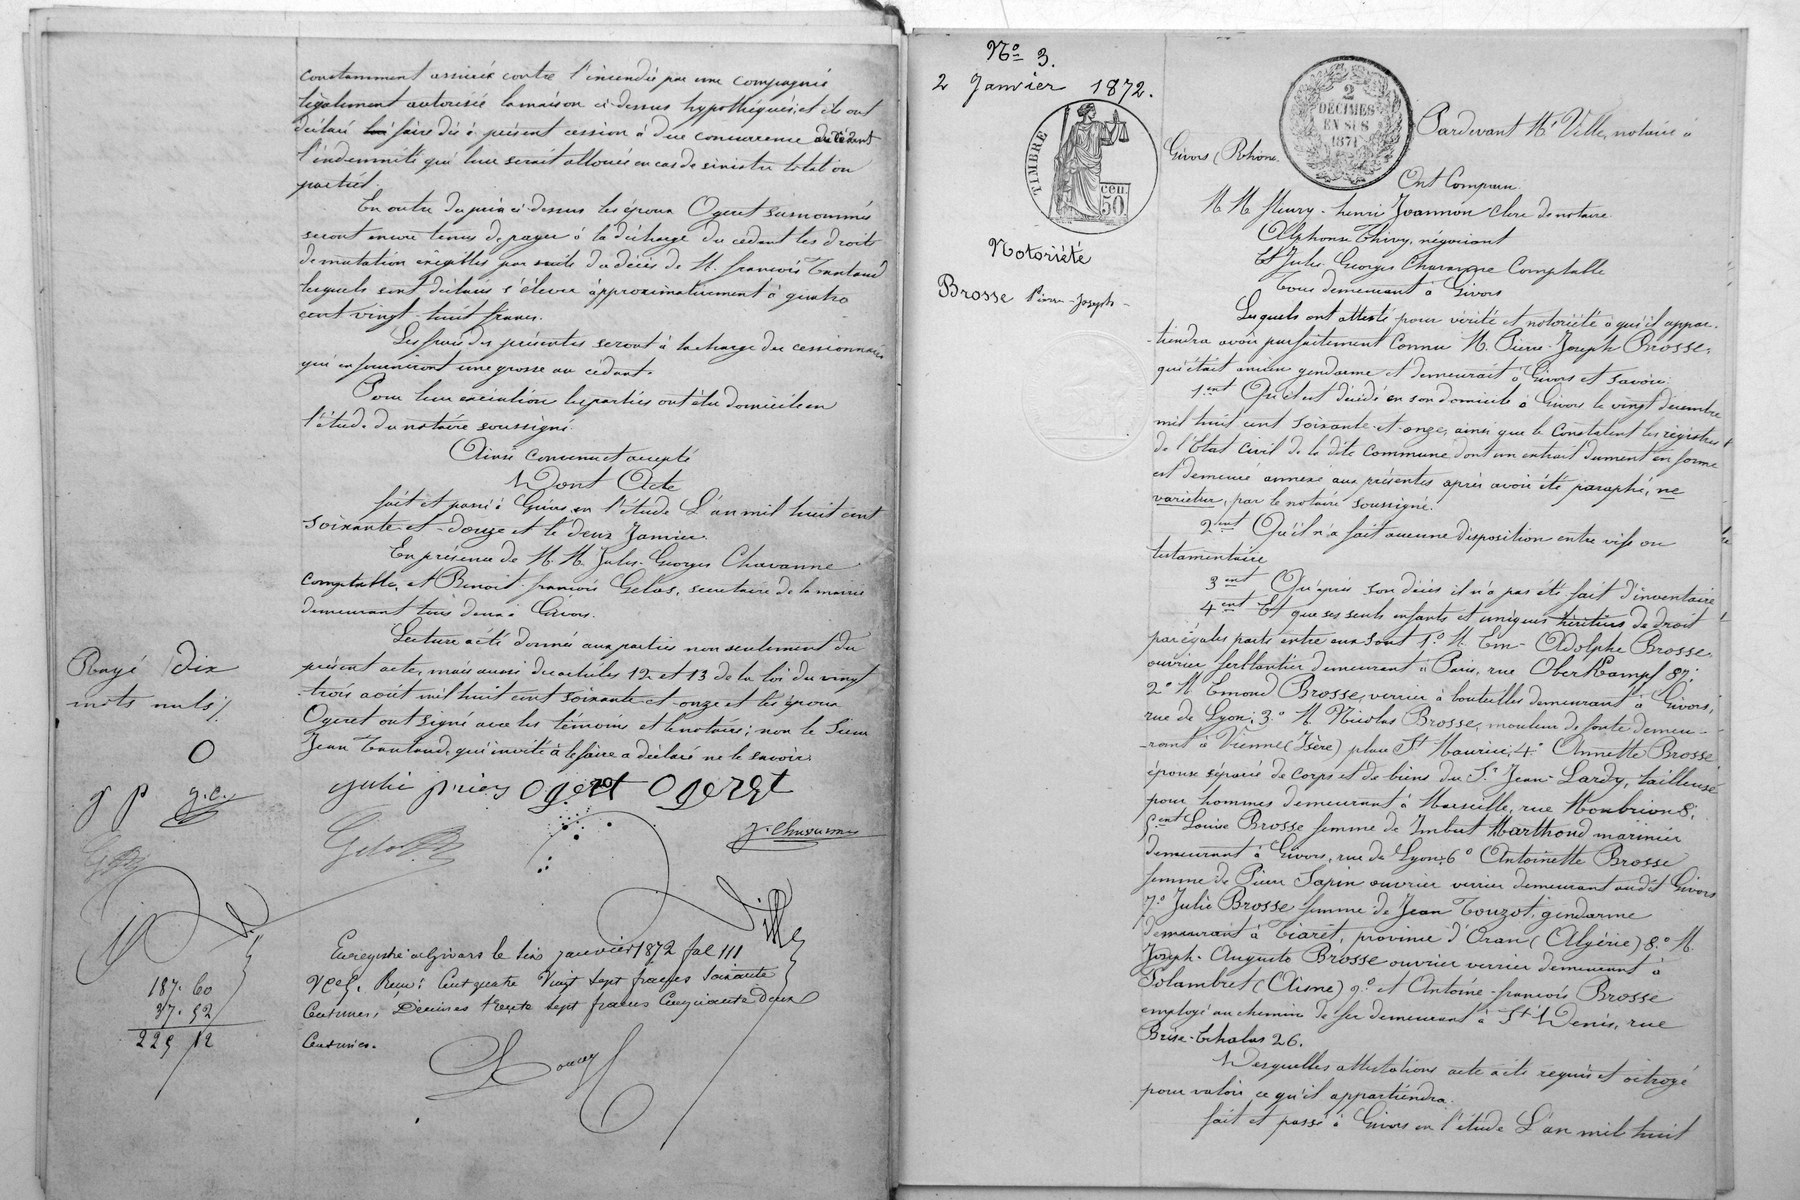 constamment assurée contre l'incendie par une compagnie
légalement autorisée la maison ci-dessus hypothéquée, et ils ont
déclaré faire dès à présent cession à due concurrence au cédant
l'indemnité qui leur serait allouée en cas de sinistre total ou
partiel.
En outre du prix ci-dessus les époux Ogeret susnommés
seront encore tenus de payer à la décharge du cédant les droits
de mutation exigibles par suite du décès de M. françois
lesquels sont déclarés s'élever approximativement à quatre
cent vingt-huit francs.
Les frais des présentes seront à la charge des cessionnaires
qui en fourniront une grosse au cédant.
Pour leur exécution les parties ont élu domicile en
l'étude du notaire soussigné.
Ainsi convenu et accepté
Dont Acte
fait et passé à Givors en l'étude L'an mil huit cent
soixante-et-douze et le deux Janvier.
En présence de M.M. Jules-Georges Chavanne
comptable, et Benoit-françois Gelas, secrétaire de la mairie
demeurant tous deux à Givors.
Lecture a été donnée aux parties non seulement du
présent acte, mais aussi des articles 12 et 13 de la loi du vingt
-trois août mil huit cent soixante-et-onze et les époux
Ogeret ont signé avec les témoins et le notaire; non le Sieur
Jean qui invité à le faire a déclaré ne le savoir.
Rayé dix
mots nuls
julie Ogeret Ogeret
g p g.c.
J. Chavanne
Ville
Enregistré à Givors le six janvier 1872 fol 111
Reçu: Cent quatre Vingt sept francs Soixante
Centimes, Décimes trente sept francs Cinquante deux
Centimes.
187. 60
37. 52
225 12
N° 3.
2 Janvier 1872.
TIMBRE
cen.
50
2
DÉCIMES
EN SUS
1871
Notoriété
Brosse Pierre-Joseph-
Pardevant Me Ville, notaire à
Givors (Rhône.
Ont Comparu
M M fleury-henri Joannon clerc de notaire
Alphonse Thivy, négociant
Et Jules-Georges Chavanne Comptable
Tous demeurant à Givors
Lesquels ont attesté pour vérité et notoriété à qui il appar-
-tiendra avoir parfaitement connu M. Pierre-Joseph Brosse,
qui était ancien gendarme et demeurait à Givors et savoir:
1ent Qu'il est décédé en son domicile à Givors le vingt décembre
mil huit cent soixante-et-onze, ainsi que le constatent les registres
de l'Etat civil de la dite commune dont un extrait dument en forme
est demeuré annexé aux présentes après avoir été paraphé, ne
varietur, par le notaire soussigné.
2ent Qu'il n'a fait aucune disposition entre vifs ou
testamentaire
3ent Qu'après son décès il n'a pas été fait d'inventaire
4ent Et que ses seuls enfants et uniques héritiers de droit
par égales parts entre eux sont 1.° M. Em- Adolphe Brosse
ouvrier ferblantier demeurant à Paris, rue OberKampf 87;
2° M. Emond Brosse, verrier à bouteilles demeurant à Givors,
rue de Lyon; 3° M. Nicolas Brosse, mouleur de fonte demeu-
-rant à Vienne (Isère) place St Maurice; 4° Annette Brosse
épouse séparée de corps et de biens du Sr Jean Lardy, tailleuse
pour hommes demeurant à Marseille, rue Monbrion 8;
5ent Louise Brosse femme de Imbert Marthoud marinier
demeurant à Givors, rue de Lyon; 6° Antoinette Brosse
femme de Pierre Sapin ouvrier verrier demeurant audit Givors
7° Julie Brosse femme de Jean Touzot, gendarme
demeurant à Tiaret, province d'Oran (Algérie) 8.° M.
Joseph-Auguste Brosse ouvrier verrier demeurant à
Folambret (Aisne) 9.° et Antoine-françois Brosse
employé au chemin de fer demeurant à St Denis, rue
Brise-Echalas 26.
Desquelles attestations acte a été requis et octroyé
pour valoir ce qu'il appartiendra.
fait et passé à Givors en l'étude L'an mil huit